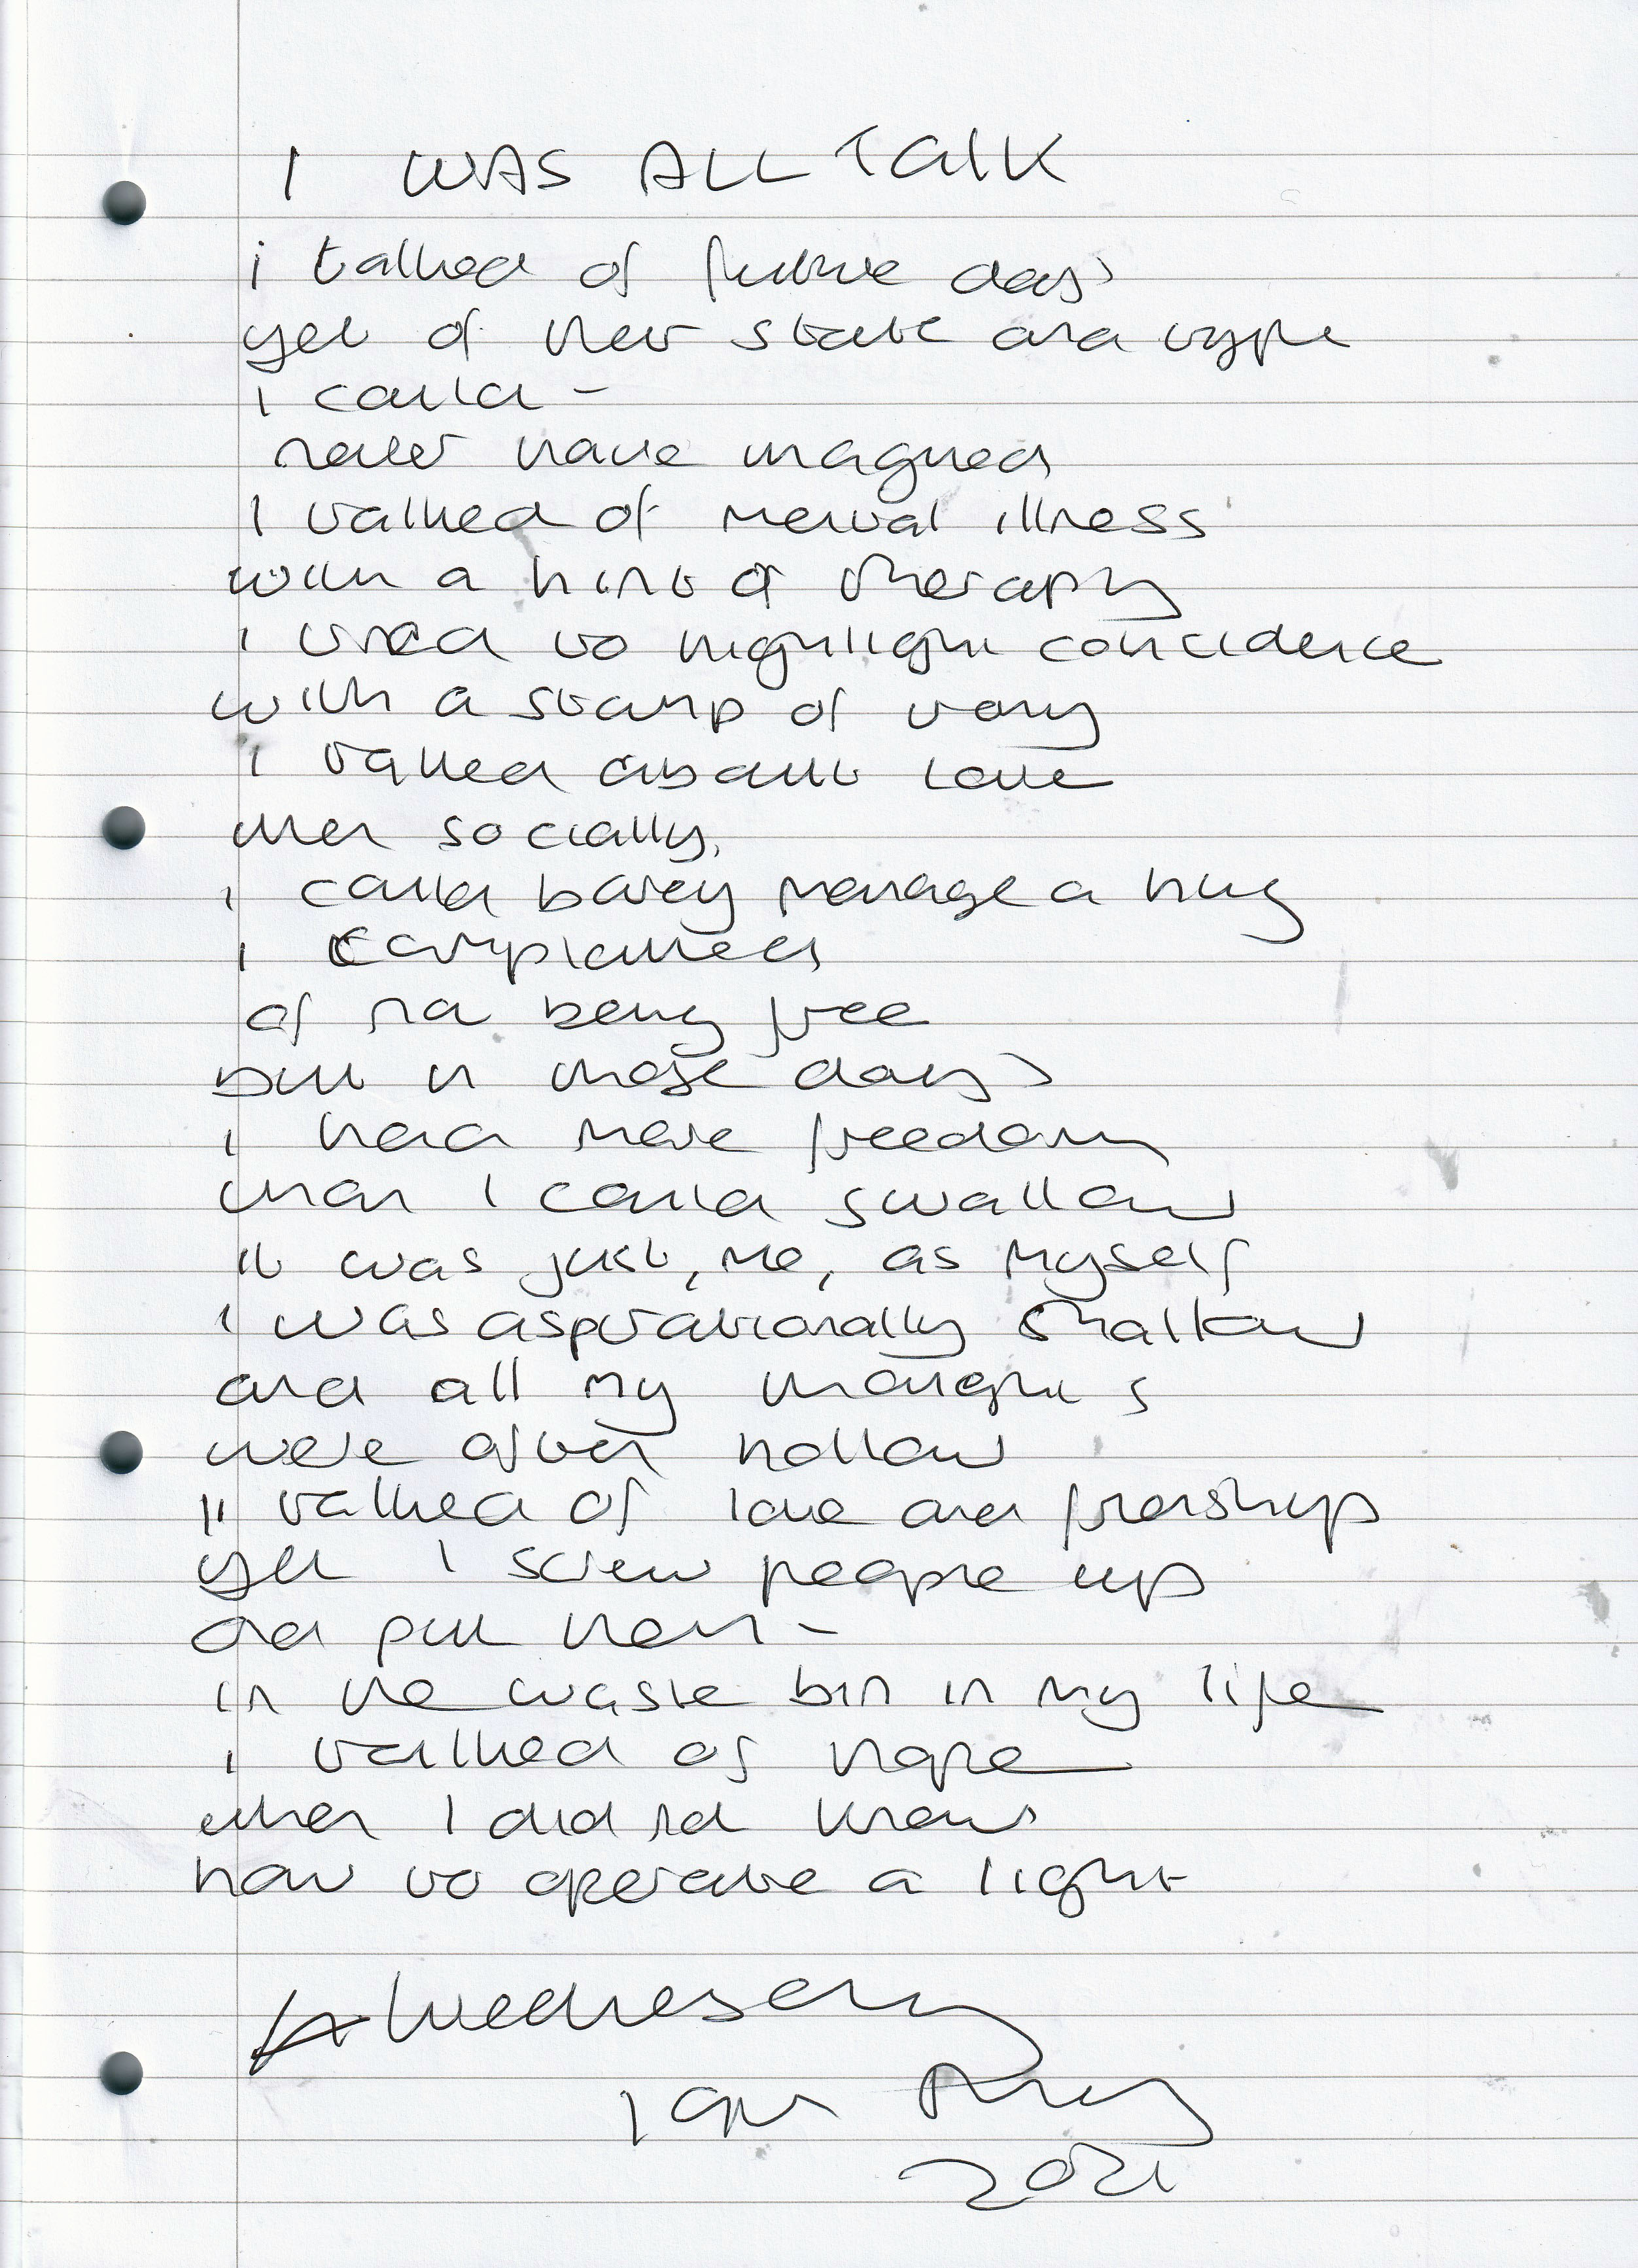 I WAS ALL TALK
i talked of future days
yet of their state and type
i could -
never have imagined
I talked of mental illness
with a hint of therapy
i used to highlight coincidence
with a stamp of irony
i talked about love
when socially,
i could barely manage a hug
i complained
of not being free
but in those days
i had more freedom
than I could swallow
it was just, me, as myself
i was aspirationally shallow
and all my thoughts
were often hollow
i talked of love and friendships
yet I screw people up
and put them -
in the waste bin in my life
i talked of hope
when I did not know
how to operate a light
Wednesday
2021